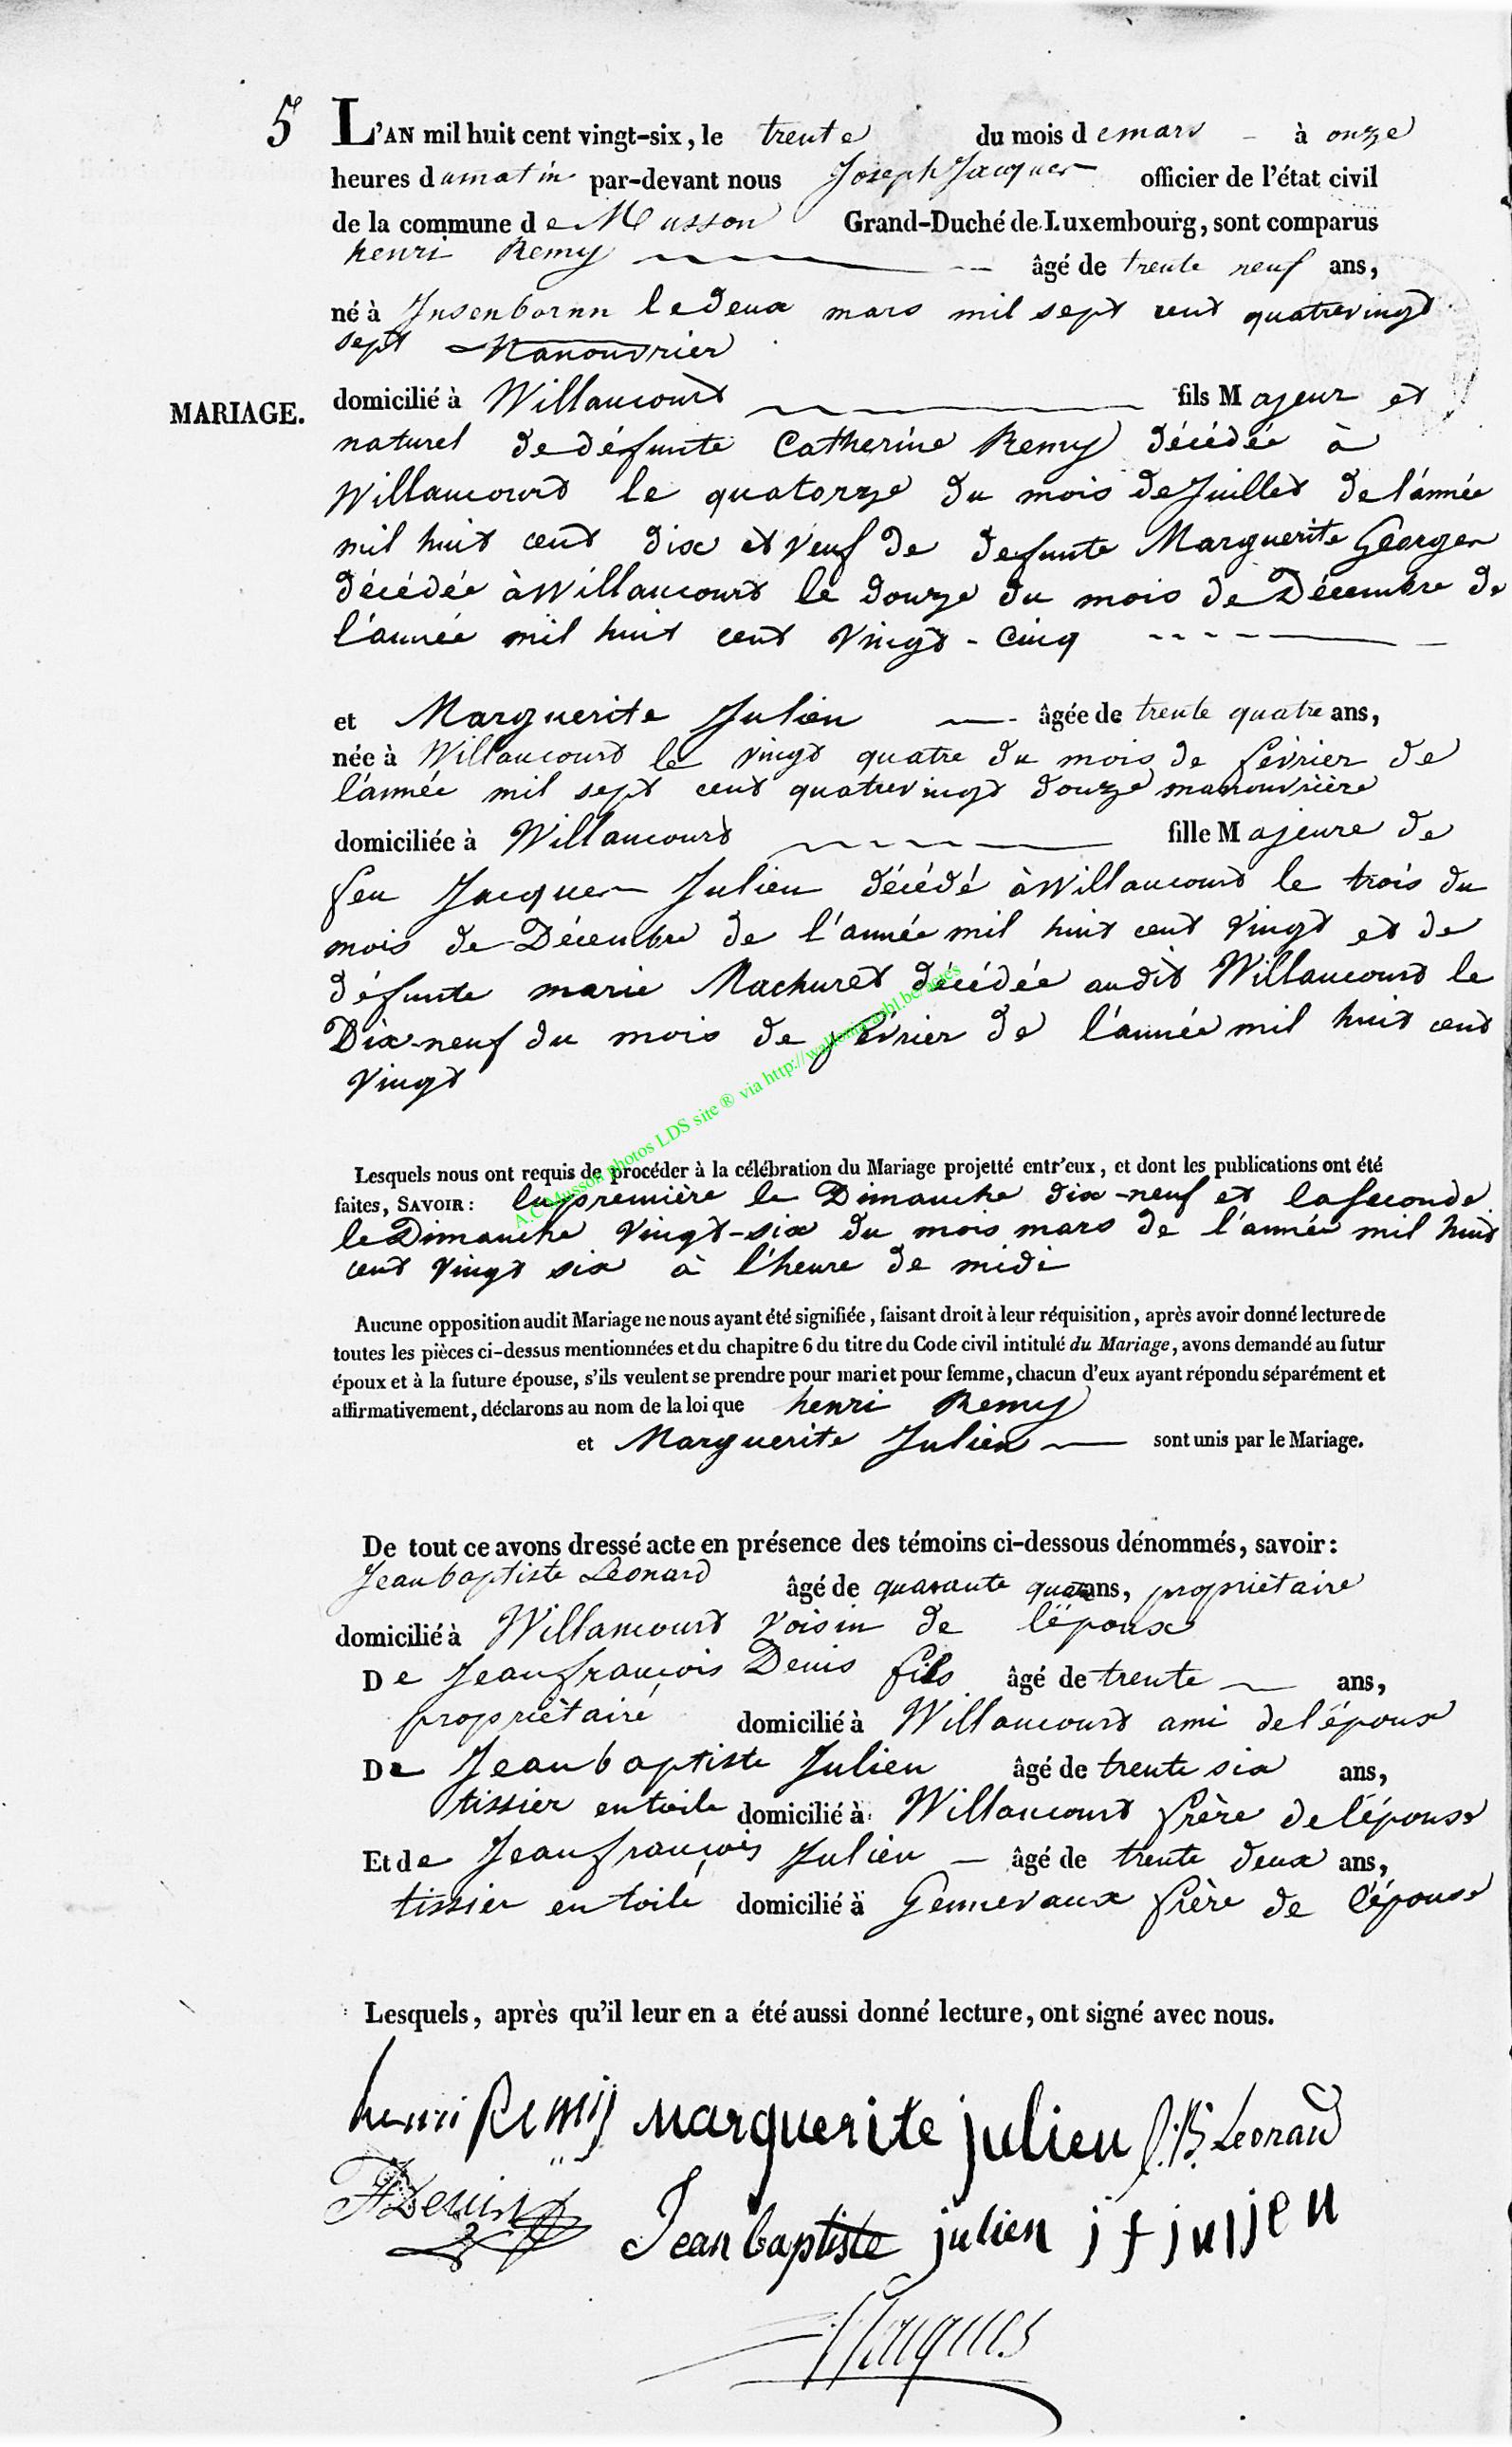 5 L'AN mil huit cent vingt-six, le trente du mois d emars - à onze
heures dumatin par-devant nous Joseph Jacques officier de l'état civil
de la commune de Musson Grand-Duché de Luxembourg, sont comparus
henri Remy âgé de trente neuf ans,
né à Insenbornn le deux mars mil sept cent quatrevingt
sept Manouvrier
MARIAGE. domicilié à Willancourt fils Majeur et
naturel de défunte Catherine Remy décédée à
Willancourt le quatorze du mois de Juillet de l'année
mil huit cent dix et veuf de defunte Marguerite Georges
décédée à Willancourt le douze du mois de Décembre de
l'année mil huit cent vingt-cinq
et Marguerite Julien âgée de trente quatre ans,
née à Willancourt le vingt quatre du mois de février de
l'année mil sept cent quatrevingt douze manouvrière
domiciliée à Willancourt fille Majeure de
feu Jacques Julien décédé à Willancourt le trois du
mois de Décembre de l'année mil huit cent vingt et de
défunte marie Machuret décédée audit Willancourt le
Dix-neuf du mois de février de l'année mil huit cent
vingt
A.C Musson photos LDS site ® via http://wallonia-asbl.be/actes
Lesquels nous ont requis de procéder à la célébration du Mariage projetté entr'eux, et dont les publications ont été
faites, SAVOIR: la première le Dimanche dix-neuf et la seconde
le Dimanche vingt-six du mois mars de l'année mil huit
cent vingt six à l'heure de midi
Aucune opposition audit Mariage ne nous ayant été signifiée, faisant droit à leur réquisition, après avoir donné lecture de
toutes les pièces ci-dessus mentionnées et du chapitre 6 du titre du Code civil intitulé du Mariage, avons demandé au futur
époux et à la future épouse, s'ils veulent se prendre pour mari et pour femme, chacun d'eux ayant répondu séparément et
affirmativement, déclarons au nom de la loi que henri Remy
et Marguerite Julien sont unis par le Mariage.
De tout ce avons dressé acte en présence des témoins ci-dessous dénommés, savoir:
Jean baptiste Leonard âgé de quarante quatre ans, propriétaire
domicilié à Willancourt voisin de l'époux
De Jean françois Denis fils âgé de trente ans,
propriétaire domicilié à Willancourt ami de l'époux
De Jean baptiste Julien âgé de trente six ans,
tissier en toile domicilié à Willancourt frère de l'épouse
Et de Jean françois Julien - âgé de trente deux ans,
tissier en toile domicilié à Gennevaux frère de l'épouse
Lesquels, après qu'il leur en a été aussi donné lecture, ont signé avec nous.
henri Remij Marguerite julien J.B. Leonard
JF Denis Jean baptiste julien j f julien
JJacques